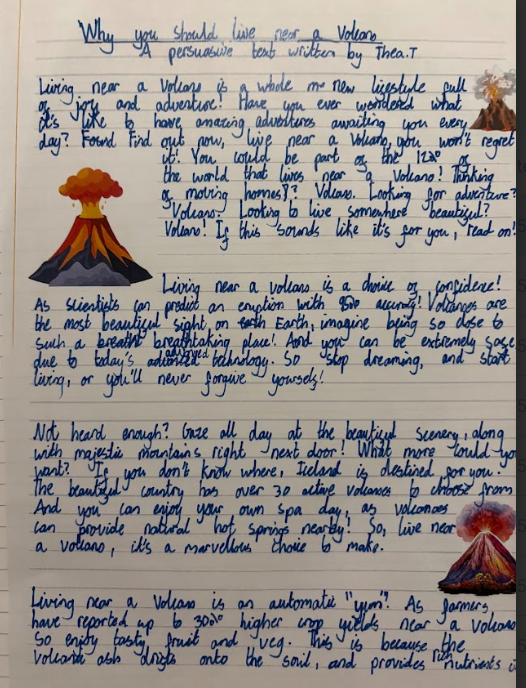 Why you should live near a Volcano
A persuasive text written by Thea.T
Living near a Volcano is a whole new lifestyle full
of joy and adventure! Have you ever wondered what
it's like to have amazing adventures awaiting you every
day? Find out now, live near a Volcano, you won't regret
it! You could be part of the 12% of
the world that lives near a Volcano! Thinking
of moving homes? Volcano. Looking for adventure?
Volcano. Looking to live somewhere beautiful?
Volcano! If this sounds like it's for you, read on!
Living near a volcano is a choice of confidence!
As scientists can predict an eruption with accuracy! Volcanoes are
the most beautiful sight on Earth, imagine being so close to
such a breathtaking place! And you can be extremely safe
due to today's advanced technology. So stop dreaming, and start
living, or you'll never forgive yourself!
Not heard enough? Gaze all day at the beautiful scenery, along
with majestic mountains right next door! What more could you
want? If you don't know where, Iceland is destined for you.
The beautiful country has over 30 active volcanoes to choose from
And you can enjoy your own spa day, as volcanoes
can provide natural hot springs nearby! So, live near
a volcano, it's a marvellous choice to make.
Living near a Volcano is an automatic "yum". As farmers
have reported up to higher crop yields near a Volcano
So enjoy tasty fruit and veg. This is because the
volcanic ash drifts onto the soil, and provides rich nutrients